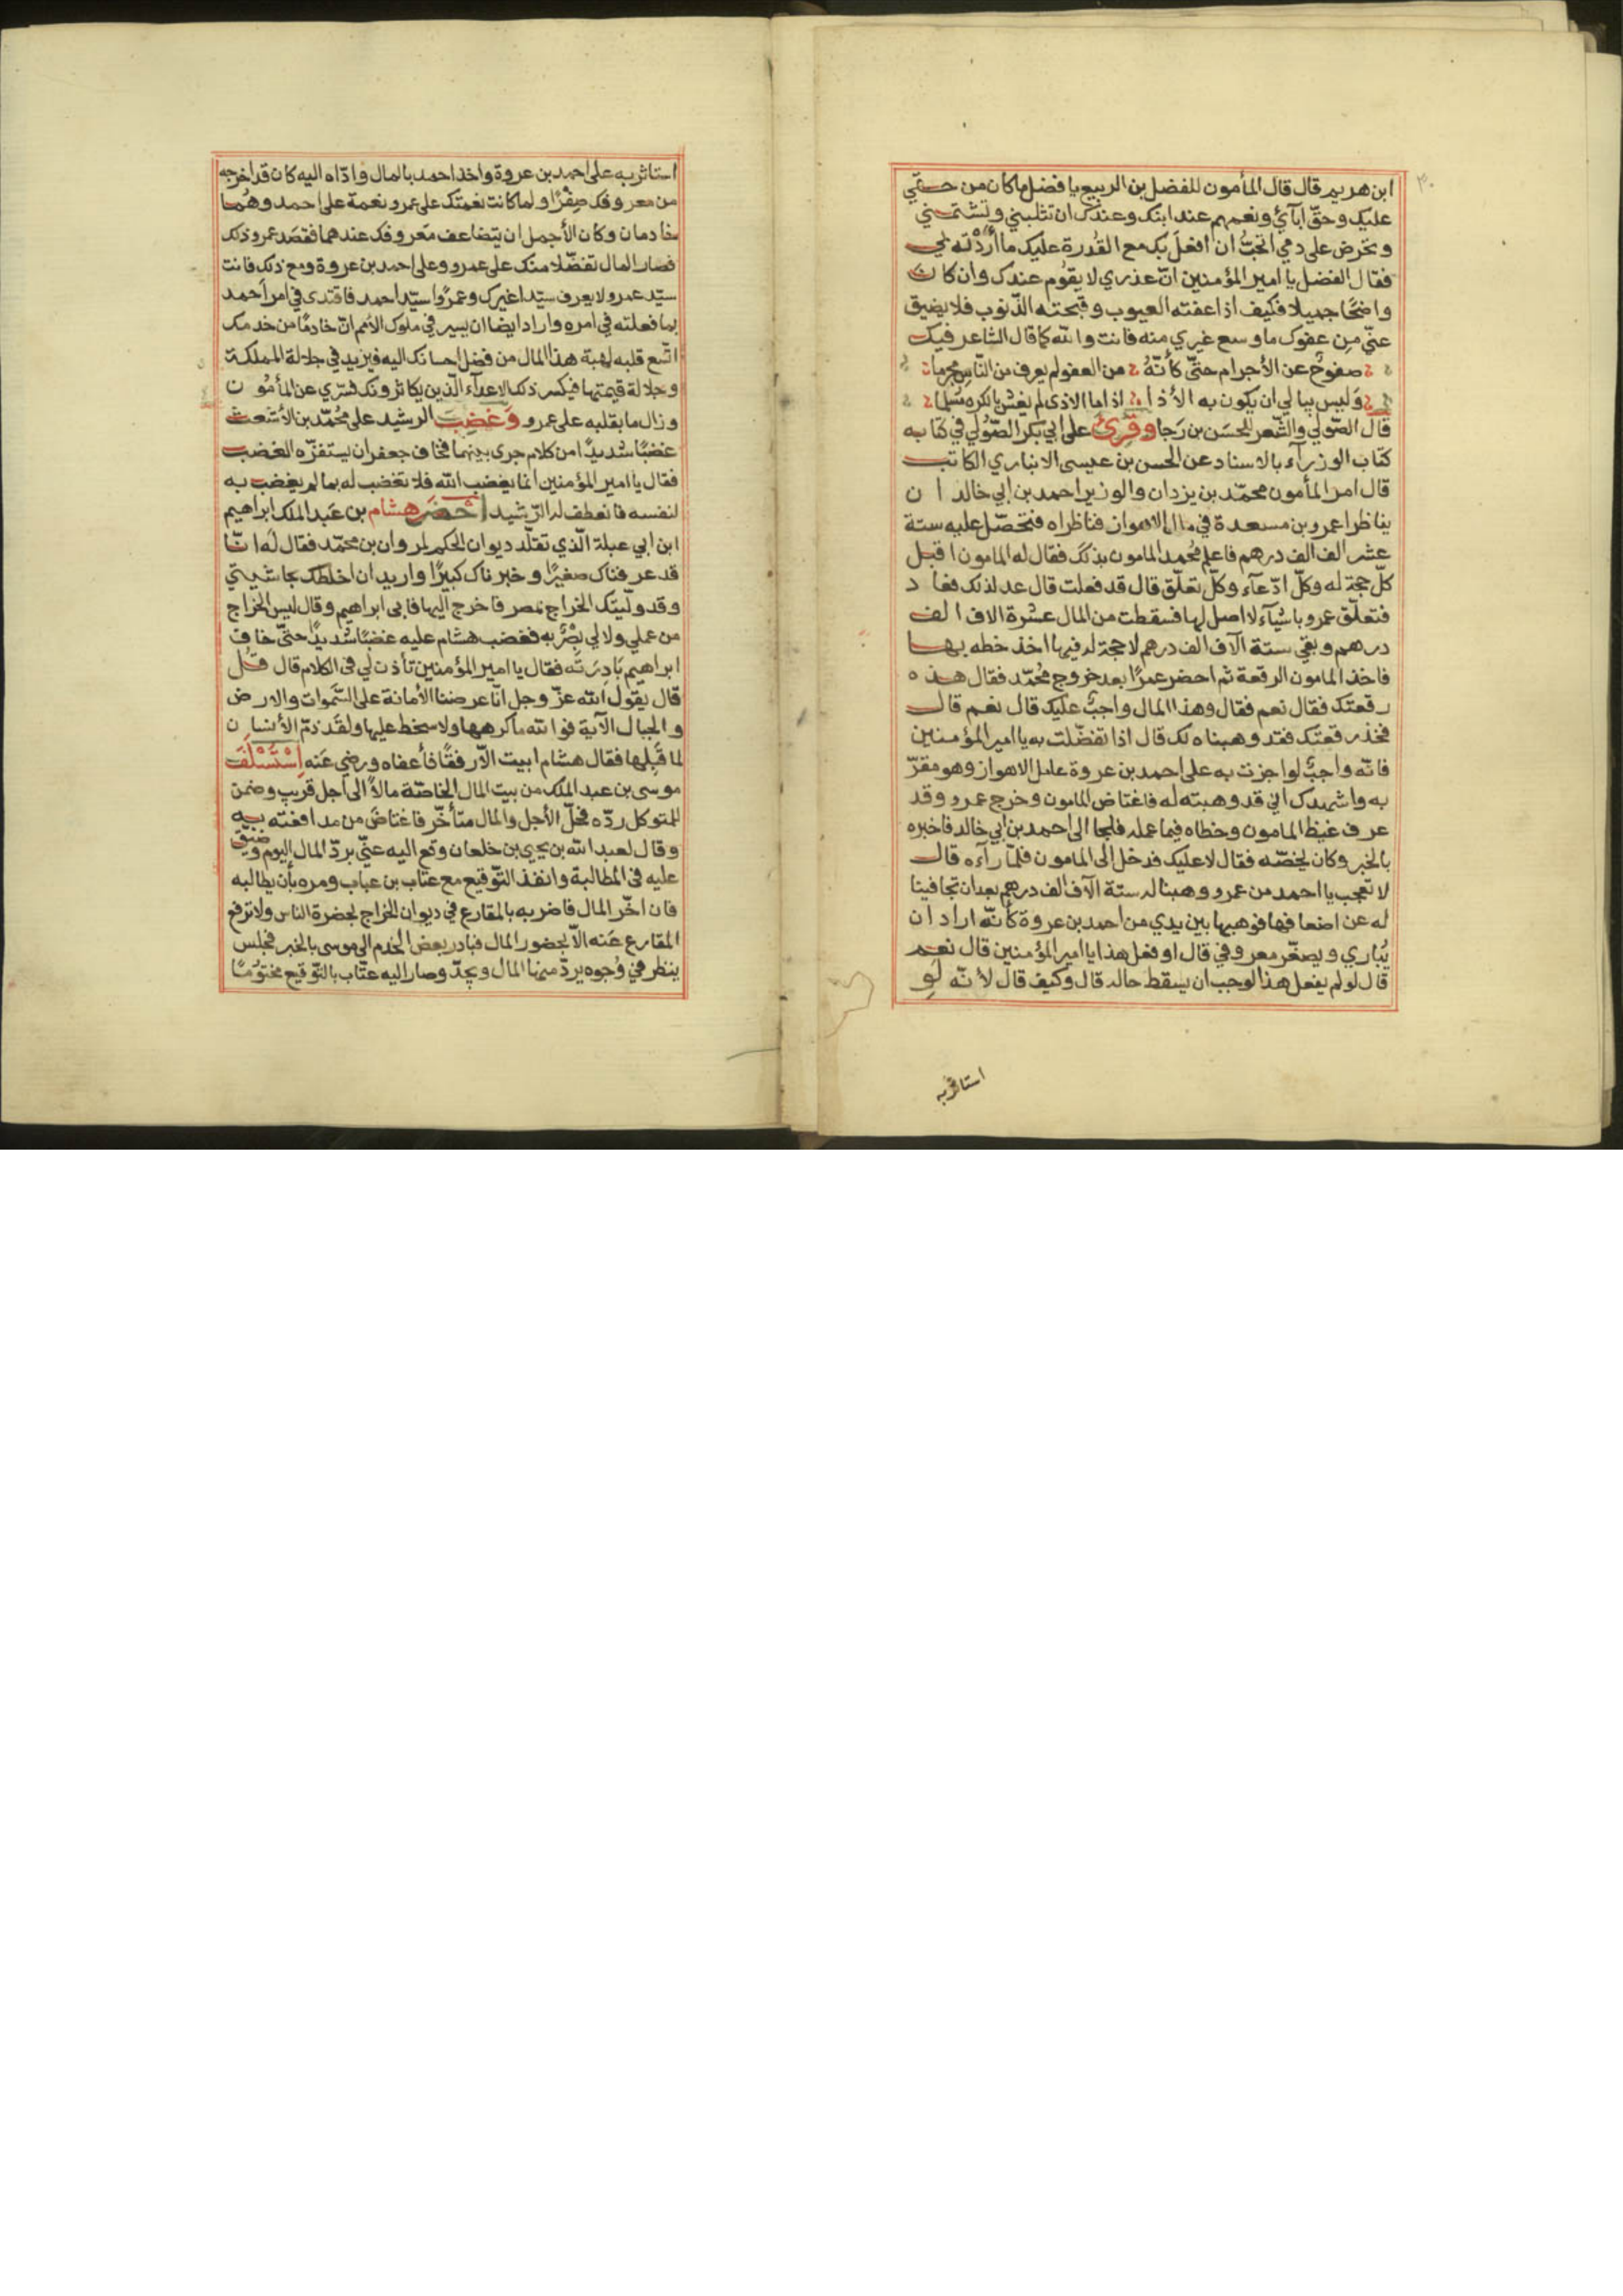 ابن هريم قال قال المأمون للفضل بن الربيع يا فضل ما كان من حقي
عليك وحقّ آبآئي ونعمهم عند ابيك وعندك ان تثلبني وتشتمني
وتحرض على دمي اتحبُّ ان افعلَ بك مع القُدرة عليك ما أَرَدْتَه بي
فقال الفضل يا امير المؤمنين انّ عذري لا يقوُم عندك وان كان
واضحًا جميلا فكيف اذا عفته العيوب وقبحته الذّنوب فلا يضيق
عنّي مِن عفوك ما وسع غيري منه فانت والله كما قال الشاعر فيك
صفوحٌ عن الأجرام حتىّ كأنّهُ من العفو لم يعرف من النّاس مجرما
وَليس يبالي ان يكون به الأذا اذا ما الاذى لم يغش بالكره مُسْلما
قال الصّولي والشّعر للحسَن بن رَجا وقُرِئَ على ابي بكر الصّوُلي في كتابه
كتاب الوزرآء بالاسناد عن الحسن بن عيسى الانباري الكاتب
قال امر المأمون محمّد بن يزدان والوزير احمد بن ابي خالد ان
يناظرا عمرو بن مسعدة في مال الاهواز فناظراه فتحصّل عليه ستة
عشر الف الف درهم فاعلم محُمد المامون بذلك فقال له المامون اقبل
كلّ حجة له وكلّ ادّعآء وكلّ تعلّق قال قد فعلت قال عد لذلك فعاد
فتعلّق عمرو باشيآء لا اصل لها فسقطت من المال عشرة الاف الف
درهم وبقي ستة الآف الف درهم لا حجة له فيها اخذ خطه بها
فاخذ المامون الرقعة ثم احضر عمرًا بعد خروج محُمّد فقال هذه
رقعتك فقال نعم فقال وهذا المال واجبٌ عليك قال نعم قال
فخذ رقعتك فقد وهبناه لك قال اذا تفضّلت به يا امير المؤمنين
فانّه واجبٌ لو اجزت به على احمد بن عروة عامل الاهواز وهو مقرّ
به واشهدك اني قد وهبته له فاغتاض المامون وخرج عمرو وقد
عرف غيظ المامون وخطاه فيما عمله فلجا الى احمد بن ابي خالد فاخبره
بالخبر وكان يخصّه فقال لا عليك فدخل الى المامون فلمّا رآءه قال
لا تعجب يا احمد من عمرو وهبنا له ستة الآف الف درهم بعد ان تجافينا
له عن اضعافها فوهبها بين يدي من احمد بن عروة كأنّه اراد ان
يُباري ويصغّر معروفي قال او فعل هذا يا امير المؤمنين قال نعم
قال لو لم يفعل هذا لوجب ان يسقط حاله قال وكيف قال لأنّه لو
استاثر به
استاثر به على احمد بن عروة واخذ احمد بالمال وادّاه اليه كان قد اخرجه
من معروفك صِفْرًا ولما كانت نعمتك على عمرو نعمة على احمد وهُما
خادمان وكان الأجمل ان يتضاعف مَعروفك عندهما فقصَد عمرو ذلك
فصار المال تفضّلا منك على عمرو وعلى احمد بن عروة ومع ذلك فانت
سيّد عمرو لا يعرف سيّدا غيرك وعمرًوا سيّد احمد فاقتدى في امر احمد
بما فعلته في امره واراد ايضا ان يسير في ملوك الأمم انّ خادمًا من خدمك
اتّسع قلبه لهبة هذا المال من فضل احسانك اليه فيزيد في جلالة المملكة
وجلالة قيمتها فيكسر ذلك الاعدآء الّذين يكاثرونك فسّري عن المأمُون
وزال ما بقلبه على عمرو وَغضِبَ الرشيد على محُمّد بن الأشعث
غضبًا شديدًا من كلام جرى بينهما فخاف جعفر ان يستفزّه الغضب
فقال يا امير المؤمنين انما يغضب الله فلا تغضب له بما لم يغضب به
لنفسه فانعطف له الرّشيد احْضَر هشام بن عَبد الملك ابراهيم
ابن ابي عبلة الّذي تقلّد ديوان الحكم لمروان بن محمّد فقال لَه انّا
قد عرفناك صغيرًا وخبرناك كبيرًا واريد ان اخلطك بحاشيتي
وقد ولّيتك الخراج بمصر فاخرج اليها فابى ابراهيم وقال ليس الخراج
من عملي ولا لي بصَرٌ به فغضب هشام عليه غضبًا شديدًا حتىّ خاف
ابراهيم بَادِرَته فقال يا امير المؤمنين تأذن لي في الكلام قال قُل
قال يقول الله عزّ وجل انّا عرضنا الأمانة على السّموات والارض
والجبال الآية فوالله ما كرهها ولا سخط عليها ولقَد ذمّ الأنسان
لما قَبِلها فقال هشام ابيت الاّ رفقًا فأعفاه ورضي عَنه اِسْتَسْلَفَ
موسى بن عبد الملك من بيت المال الخاصّة مالاً الى اجل قريب وضمن
للمتوكل ردّه فحلّ الأجل والمال متأخّر فاغتاضَ من مدافعته به
وقال لعبد الله بن يحيى بن خلعان وقع اليه عنّي بردّ المال اليوم وضيّق
عليه في المطالبة وانفذ التّوقيع مع عتاب بن عباب ومره بأن يطالبه
فان اخّر المال فاضربه بالمقارع في ديوان الخراج بحضرة الناس ولا ترفع
المقارع عَنه الاّ بحضور المال فبادر بعض الخدم الى موسى بالخبر فجلس
ينظر في وُجوه يردّ منها المال ويجدّ وصار اليه عتّاب بالتّوقيع مختوُمًا